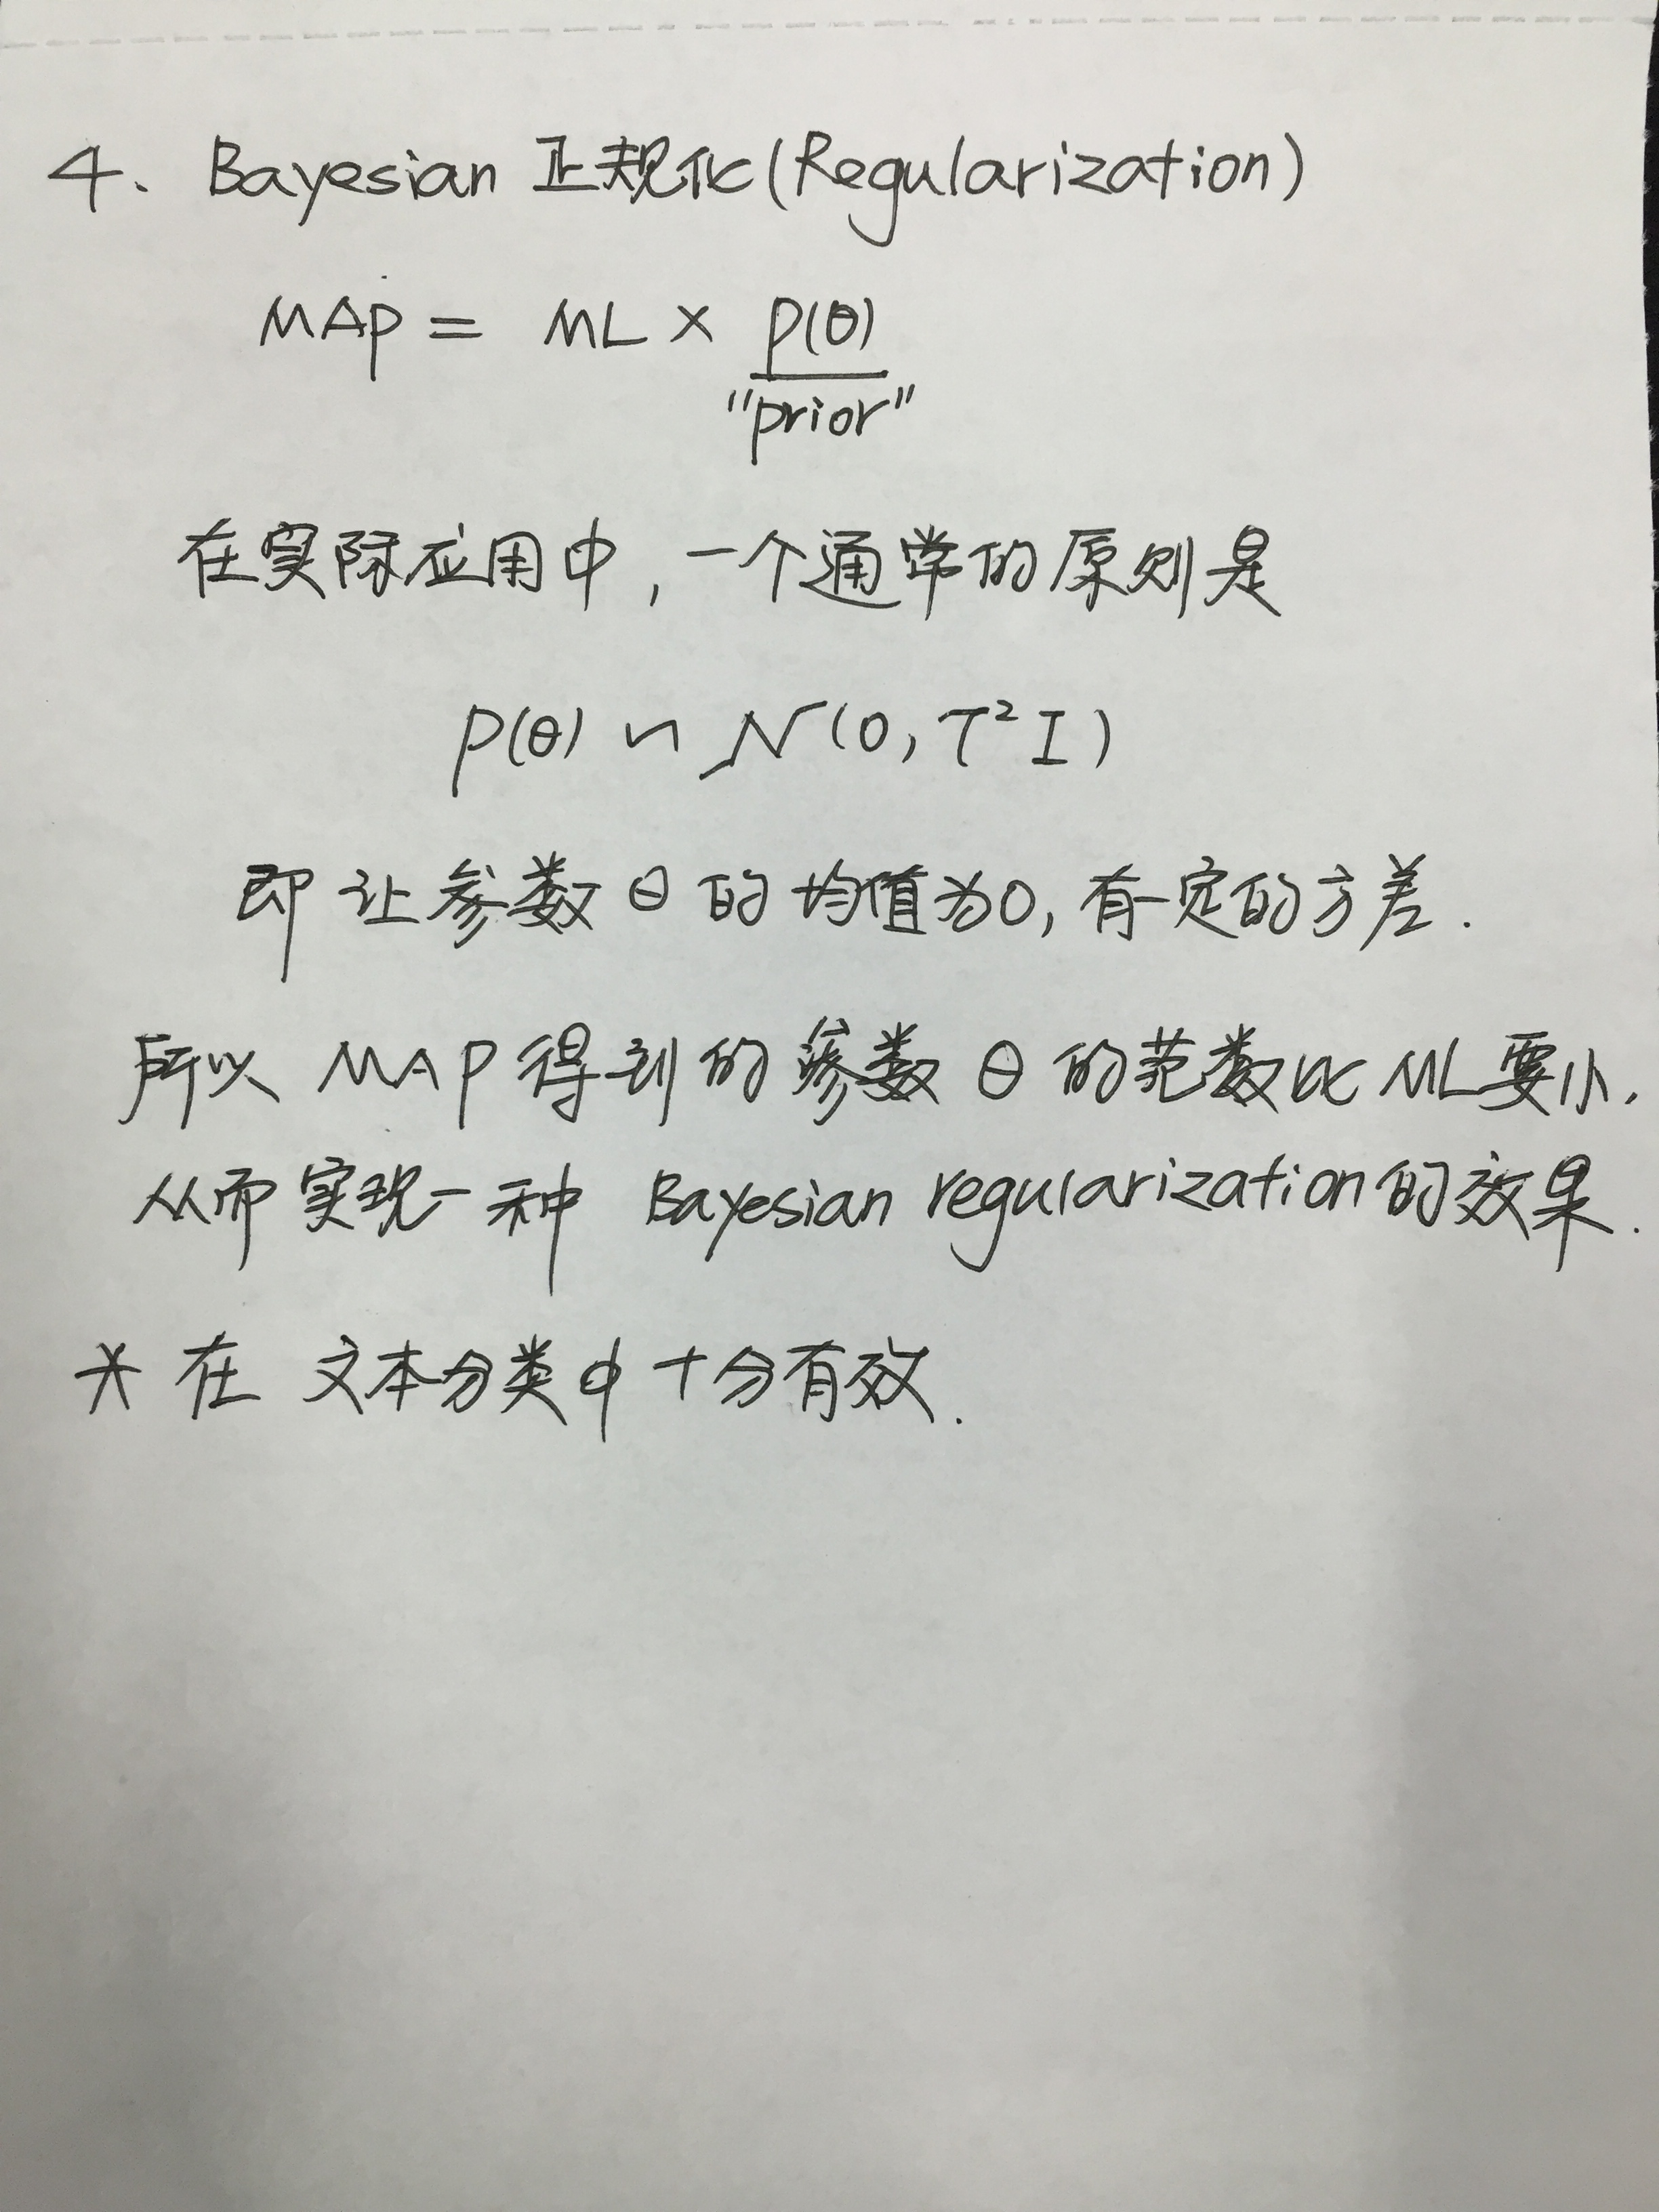 4、Bayesian 正规化(Regularization)
MAP = ML × p(θ)
"prior"
在实际应用中,一个通常的原则是
p(θ) ~ N(0, τ²I)
即让参数θ的均值为0,有一定的方差.
所以 MAP得到的参数θ的范数比ML要小,
从而实现一种 Bayesian regularization的效果.
* 在 文本分类中十分有效.